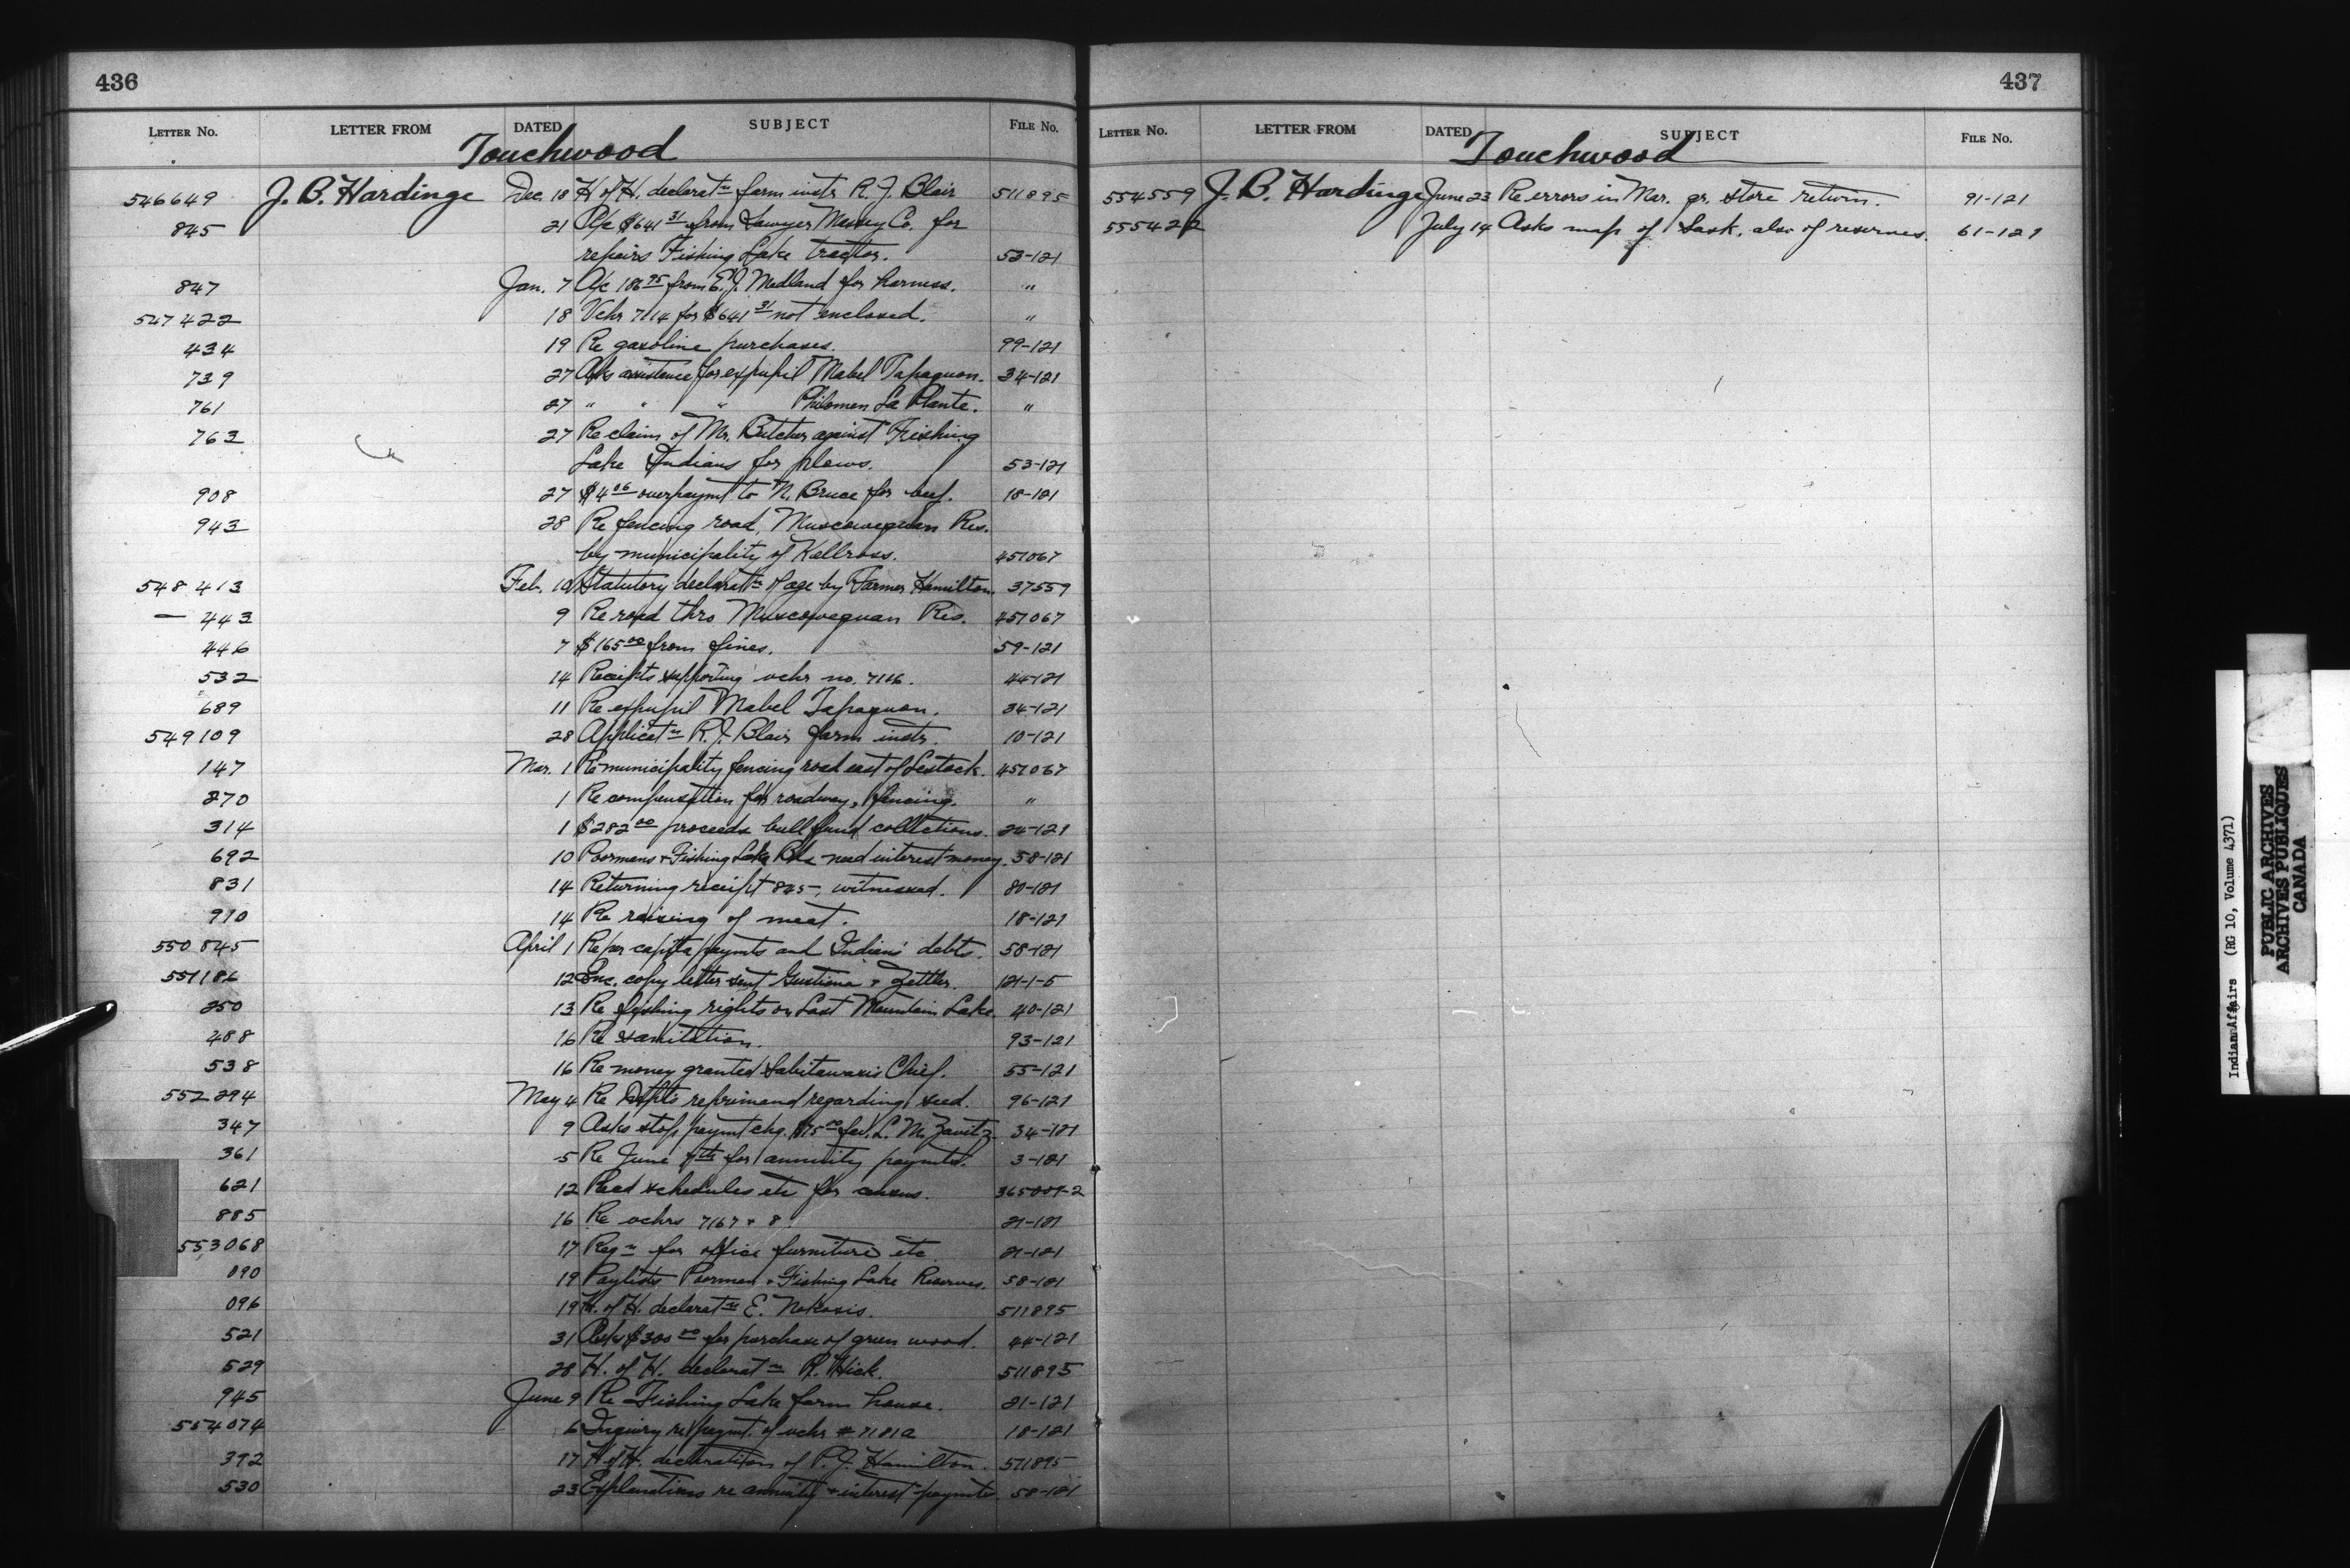 436
LETTER NO. LETTER FROM DATED SUBJECT FILE NO.
Touchwood
546649 J. B. Hardinge Dec. 18 H of H. declaratn farm instr R. J. Blair 511895
845 21 A/c $641 31 from Sawyer Massey Co. for
repairs Fishing Lake tractor. 53-121
847 Jan. 7 A/c 186 95 from E. J. Medland for harness. "
547422 18 Vchr 7114 for $641 31 not enclosed. "
434 19 Re gasoline purchases. 99-121
739 27 Asks assistance for expupil Mabel Tapaquon. 34-121
761 27 " " " Philomen La Plante. "
763 27 Re claim of Mr. Butcher against Fishing
Lake Indians for plows. 53-121
908 27 $4 06 overpaymt to N. Bruce for beef. 18-121
943 28 Re fencing road, Muscowequan Res.
by municipality of Kellross. 451067
548 413 Feb. 10 Statutory declaratn of age by Farmer Hamilton. 37559
— 443 9 Re road thro Muscowequan Res. 451067
446 7 $165 00 from fines. 59-121
532 14 Receipts supporting vchr no. 7106. 44-121
689 11 Re expupil Mabel Tapaquon. 34-121
549109 28 Applicatn R. J. Blair farm instr. 10-121
147 Mar. 1 Re municipality fencing road east of Lestock. 451067
270 1 Re compensation for roadway, fencing. "
314 1 $282 00 proceeds bull fund collections. 24-121
692 10 Poormans + Fishing Lake Bds need interest money. 58-121
831 14 Returning receipt 845, witnessed. 80-121
910 14 Re raising of meat. 18-121
550 845 April 1 Re per capita paymts and Indians' debts. 58-121
551186 12 Enc. copy letter sent & Zettler. 121-1-5
250 13 Re fishing rights on Last Mountain Lake. 40-121
488 16 Re sanitation. 93-121
538 16 Re money granted Sabitawasis Chief. 55-121
552294 May 4 Re Dept's reprimand regarding seed. 96-121
347 9 Asks stop paymt chq. $75 00 fav. L. M. Zavitz. 34-121
361 5 Re June 7th for annuity paymts. 3-121
621 12 Recd schedules etc for census. 365009-2
885 16 Re vchrs 7167 + 8. 21-121
553068 17 Reqn for office furniture etc 21-121
090 19 Paylists Poorman + Fishing Lake Reserves. 58-121
096 19 H. of H. declaratn E. Nokusis. 511895
521 31 Asks $300 00 for purchase of green wood. 44-121
529 28 H. of H. declaratn R. Hick. 511895
945 June 9 Re Fishing Lake farm house. 21-121
554074 6 Inquiry re paymt. of vchr # 7181a 18-121
392 17 H of H. declaration of P. J. Hamilton. 511895
530 23 Explanations re annuity + interest paymts. 58-121
437
LETTER NO. LETTER FROM DATED SUBJECT FILE NO.
Touchwood
554559 J. B. Hardinge June 23 Re errors in Mar. qr. store return. 91-121
555422 July 14 Asks map of Sask. also of reserves. 61-121
Indian Affairs (RG 10, Volume 4371)
PUBLIC ARCHIVES
ARCHIVES PUBLIQUES
CANADA